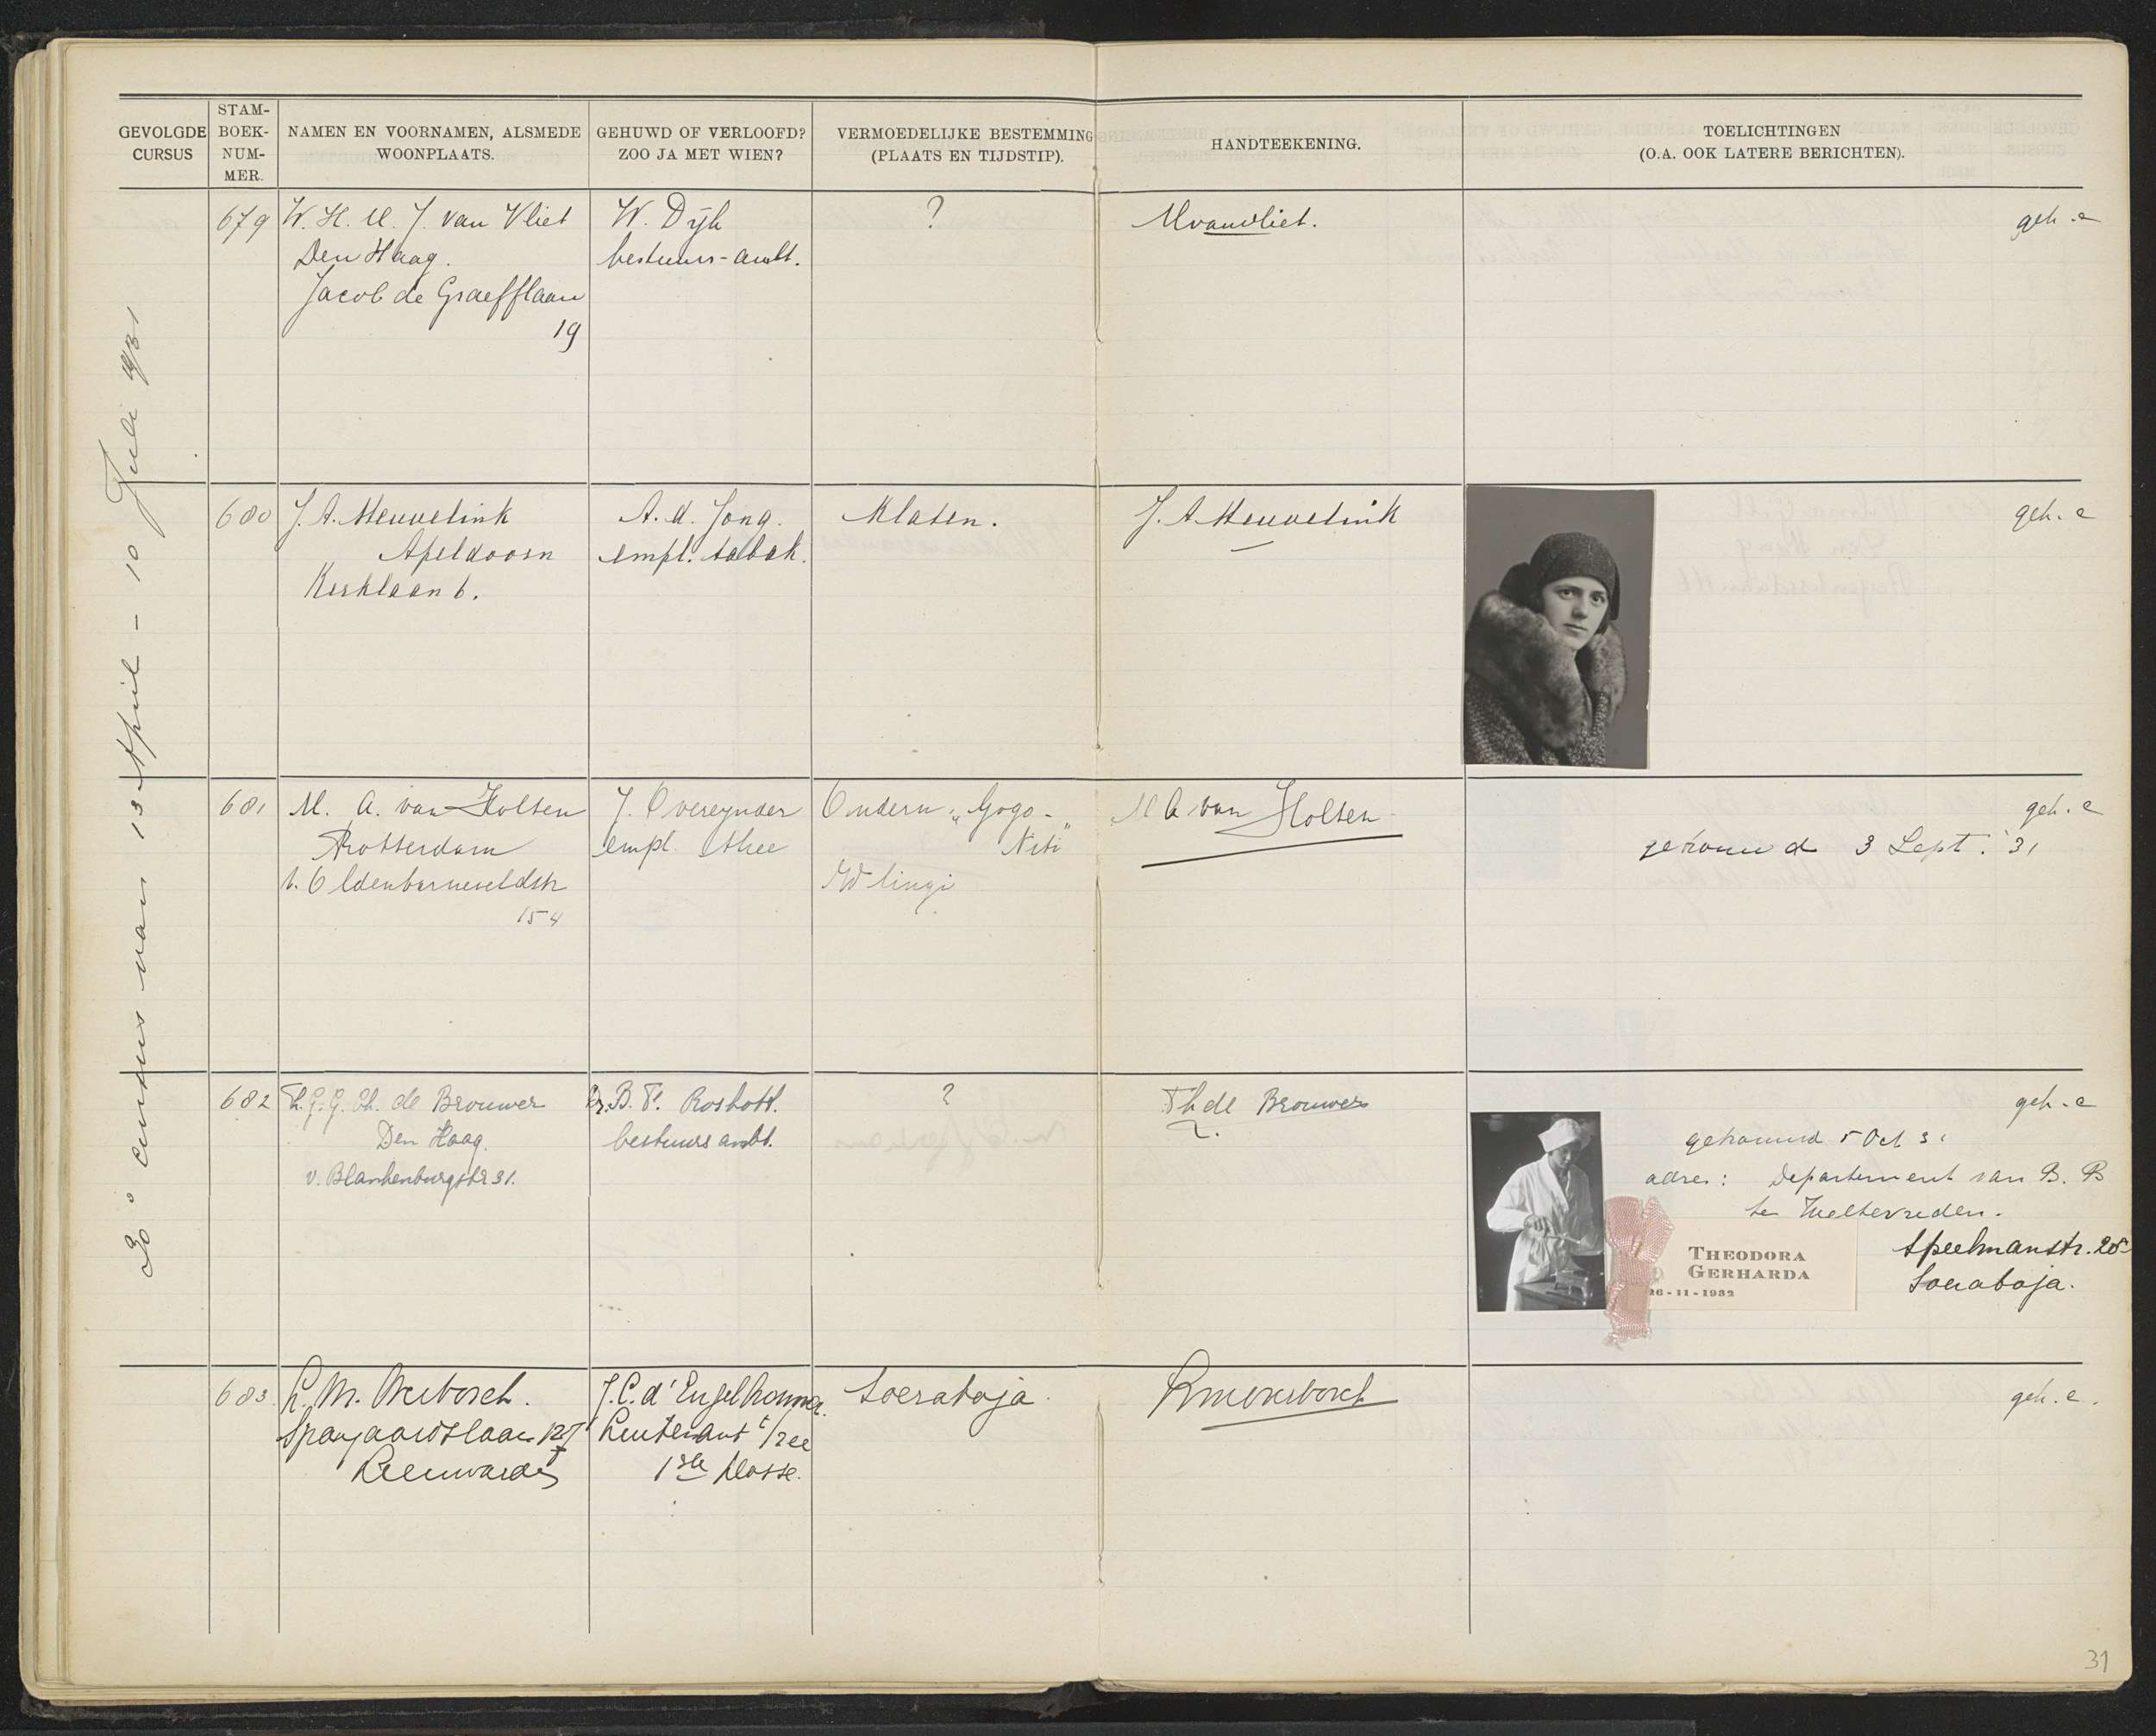 GEVOLGDE
CURSUS
STAM-
BOEK-
NUM-
MER.
NAMEN EN VOORNAMEN, ALSMEDE
WOONPLAATS.
GEHUWD OF VERLOOFD?
ZOO JA MET WIEN?
VERMOEDELIJKE BESTEMMING
(PLAATS EN TIJDSTIP).
HANDTEEKENING.
TOELICHTINGEN
(O.A. OOK LATERE BERICHTEN).
30e cursus van 13 April - 10 Juli 1931
679
W. H. M. J. van Vliet
Den Haag.
Jacob de Graefflaan
19
W. Dijk
bestuurs-ambt.
?
Mvanvliet.
geh. e
680
J. A. Heuvelink
Apeldoorn
Kerklaan 6.
A. d. Jong.
empl. tabak.
Klaten.
J. A. Heuvelink
geh. e
681
M. A. van Holten
Rotterdam
v. Oldenbarneveldstr
154
J. Overeynder
empl. thee
Ondern. "Gogo-
Niti"
Wlingi
M A van Holten
geh. e
getrouwd 3 Sept. '31
682
Th. G. G. Ch. de Brouwer
Den Haag.
v. Blankenburgstr 31.
Dr. B. F. Roshott.
bestuurs ambt.
?
Th de Brouwer
geh. e
getrouwd 5 Oct 31
adres: Departement van B. B
te Weltevreden.
Speelmanstr. 20
Soerabaja.
THEODORA
GERHARDA
26-11-1932
683
L. M. Overbosch.
Spanjaardslaan 127
Leeuwarden
J. C. d'Engelbronner.
Luitenant t/zee
1ste klasse.
Soerabaja.
LMOverbosch
geh. e.
31